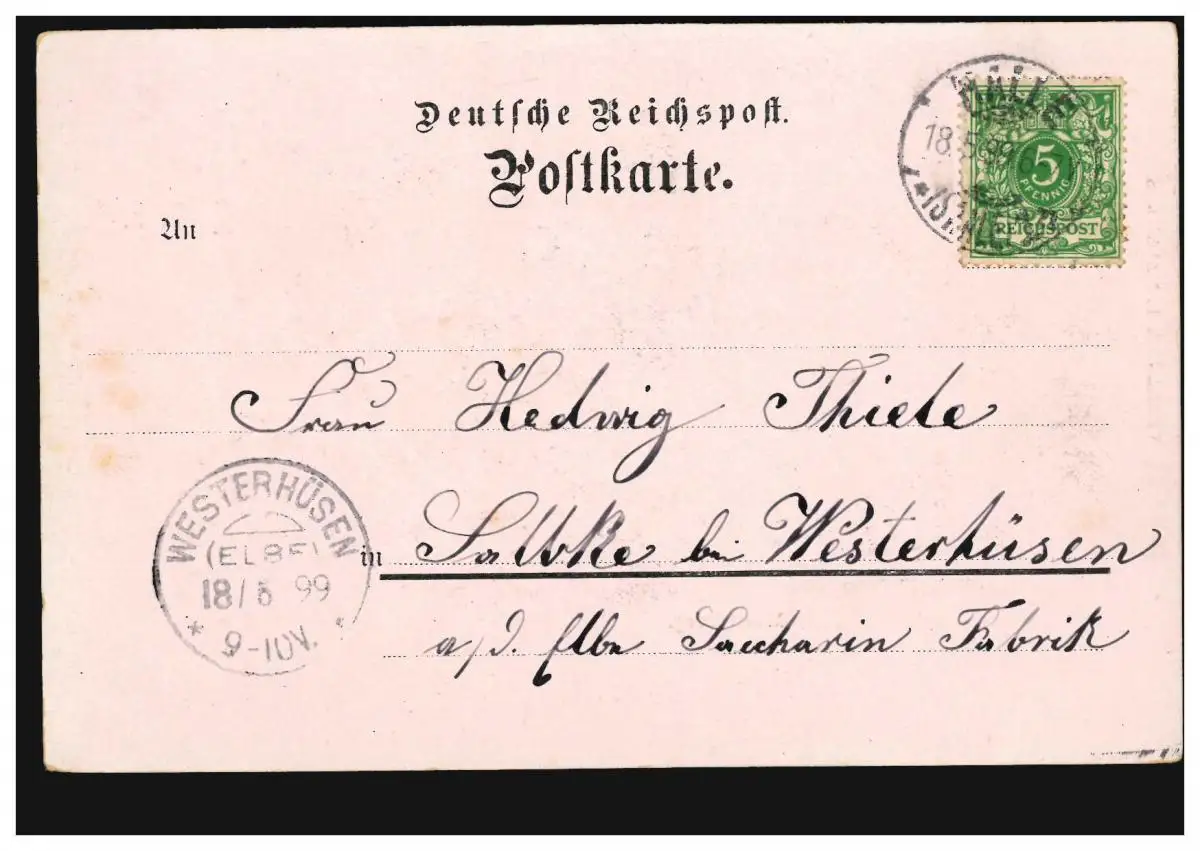 Deutsche Reichspost.
Postkarte.
An
18.5.99
5
PFENNIG
REICHSPOST
Frau Hedwig Thiele
WESTERHÜSEN
(ELBE)
18/5 99
9-10V.
in Salbke bei Westerhüsen
a/d. Elbe Saccharin Fabrik